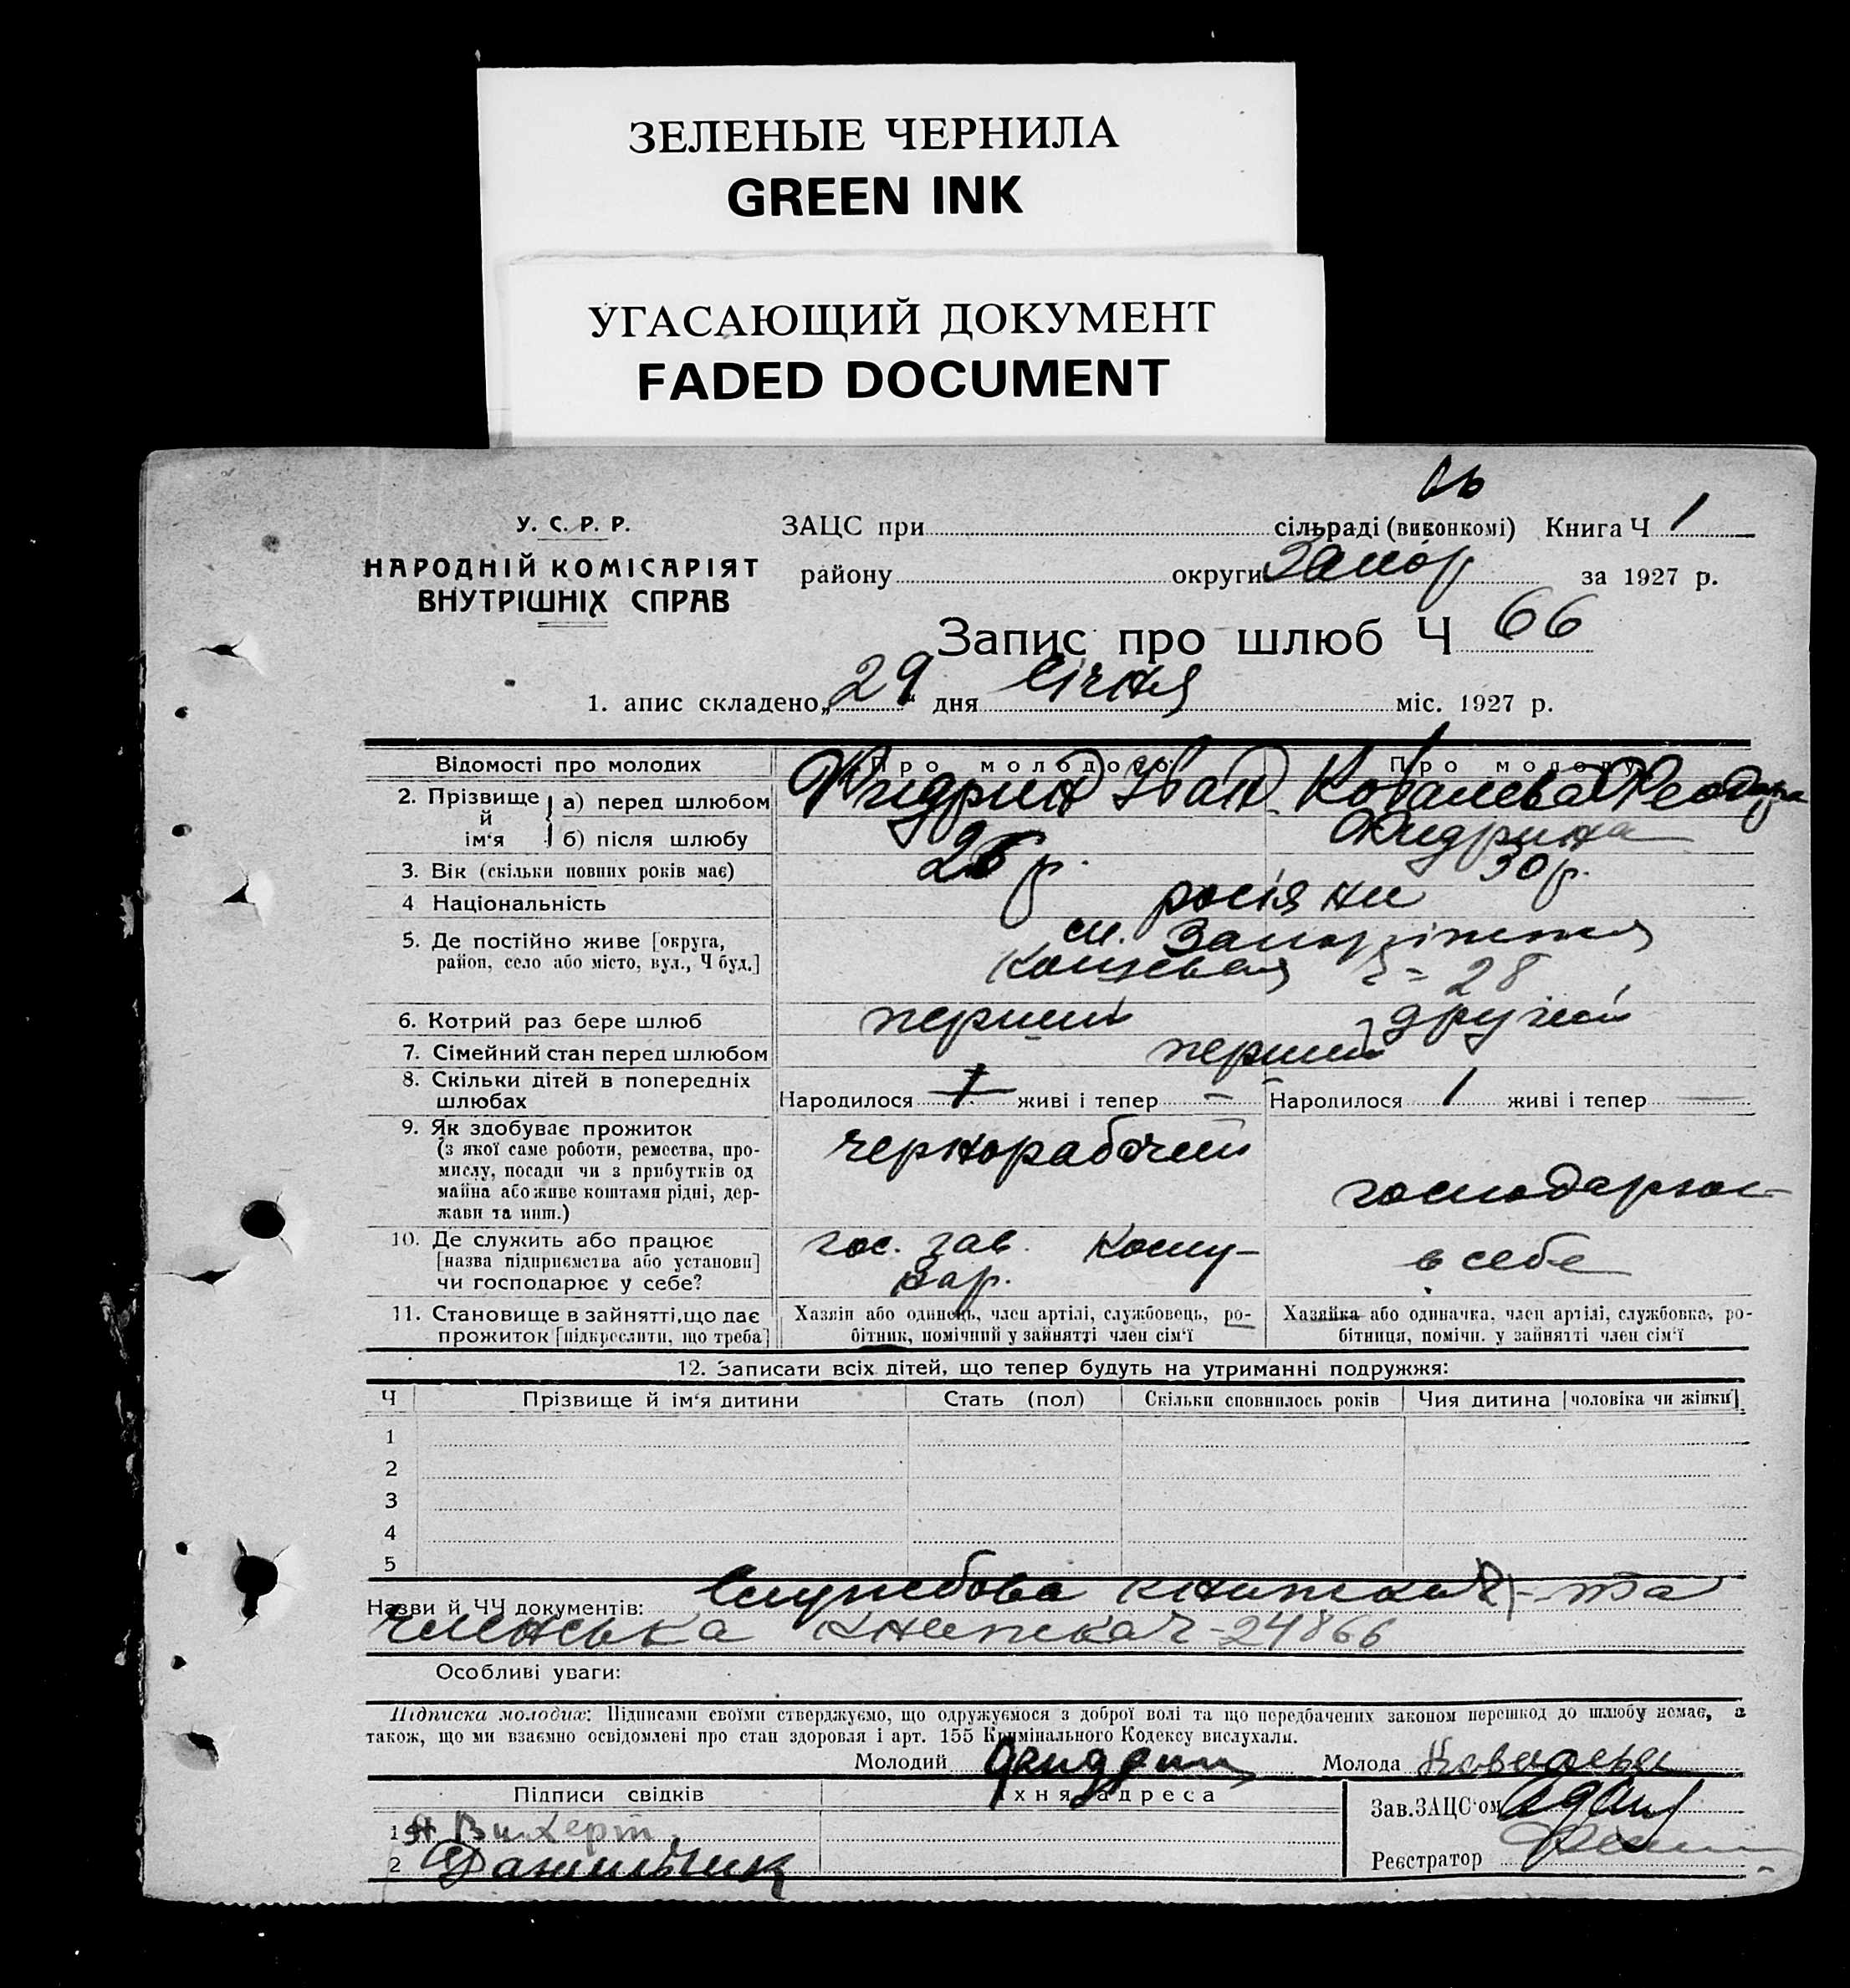 ЗЕЛЕНЫЕ ЧЕРНИЛА
GREEN INK
УГАСАЮЩИЙ ДОКУМЕНТ
FADED DOCUMENT
У. С. Р. Р.
НАРОДНІЙ КОМІСАРІЯТ
ВНУТРІШНІХ СПРАВ
ЗАЦС при сільраді (виконкомі) Книга Ч 1
району округи Запор за 1927 р.
Запис про шлюб Ч 66
1. апис складено „29“ дня січня міс. 1927 р.
Відомості про молодих Про молодого Про молоду
2. Прізвище й ім‘я а) перед шлюбом Жидрин Іван Ковалева Феодора
б) після шлюбу Жидрина
3. Вік (скільки повних років має) 26 р. 30 р.
4 Національність росіяни
5. Де постійно живе [округа, м. Запоріжжя
район, село або місто, вул., Ч буд.] 28
6. Котрий раз бере шлюб перший другий
7. Сімейний стан перед шлюбом перший
8. Скільки дітей в попередніх
шлюбах Народилося 1 живі і тепер — Народилося 1 живі і тепер —
9. Як здобуває прожиток
(з якої саме роботи, ремества, про-
мислу, посади чи з прибутків од
майна або живе коштами рідні, дер-
жави та инш.)
чернорабочий господарює
10. Де служить або працює
[назва підприємства або установи]
чи господарює у себе?
гос. зав. Кому-
нар. в себе
11. Становище в зайнятті, що дає
прожиток [підкреслити, що треба]
Хазяїн або одинець, член артілі, службовець, ро-
бітник, помічний у зайнятті член сім‘ї
Хазяйка або одиначка, член артілі, службовка, ро-
бітниця, помічн. у зайнятті член сім‘ї
12. Записати всіх дітей, що тепер будуть на утриманні подружжя:
Ч Прізвище й ім‘я дитини Стать (пол) Скільки сповнилось років Чия дитина [чоловіка чи жінки]
1
2
3
4
5
Назви й ЧЧ документів: Службова книжка Ч - та
членська книжка Ч-24866
Особливі уваги:
Підписка молодих: Підписами своїми стверджуємо, що одружуємося з доброї волі та що передбачених законом перешкод до шлюбу немає, а
також, що ми взаємно освідомлені про стан здоровля і арт. 155 Кримінального Кодексу вислухали.
Молодий Жидрин Молода Ковалева
Підписи свідків Їхня адреса
Зав.ЗАЦС‘ом
1
2 Данильчик
Реєстратор